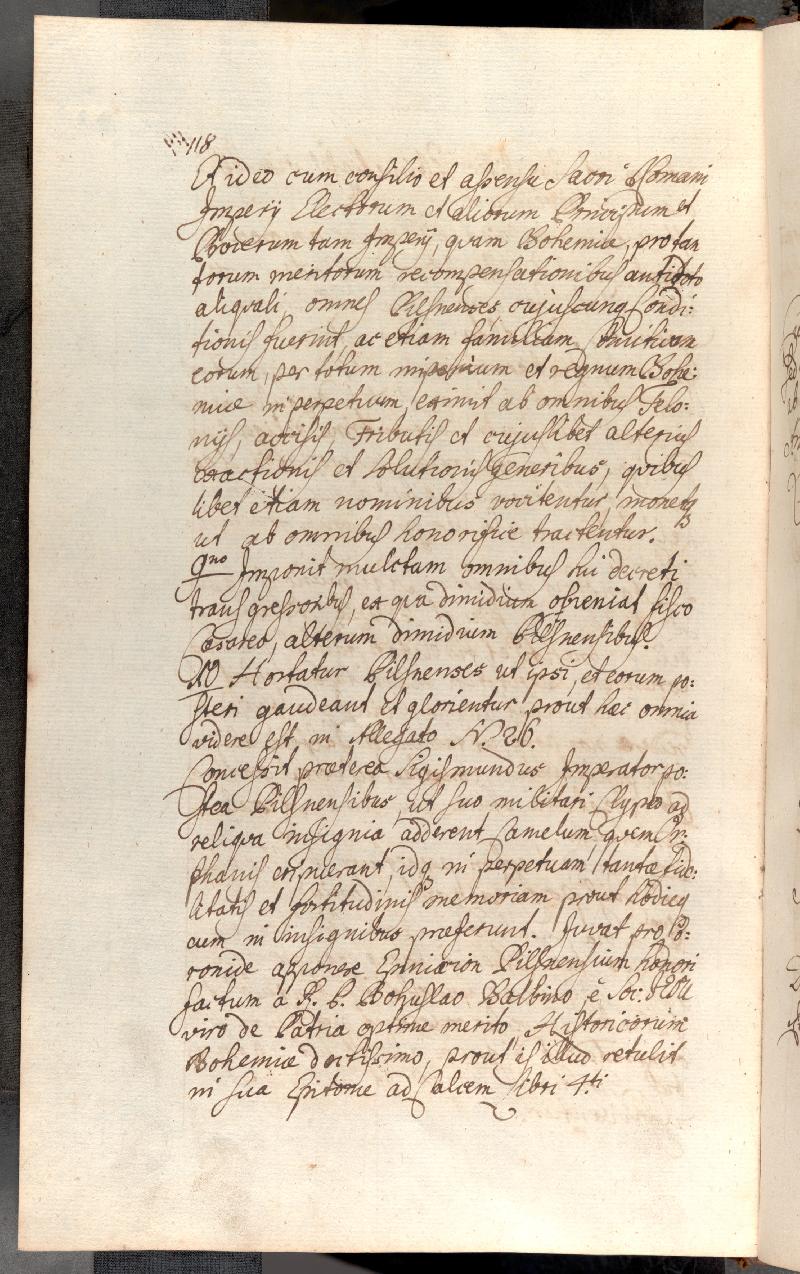 118
Et ideo cum consilio et assensu Sacri Romani
Imperij Electorum et aliorum Principum et
Procerum tam Imperij, quam Bohemiæ, pro tan
torum meritorum recompensationibus antidoto
aliquali, omnes Pilsnenses, cujuscunq Condi:
tionis fuerint, ac etiam familiam
eorum, per totum imperium et regnum Bohe:
miæ in perpetuum, eximit ab omnibus Telo:
nijs, accisis, Tributis et cujuslibet alterius
exactionis et solutionis generibus, quibus
libet etiam nominibus vocitentur, monetq
ut ab omnibus honorifice tractentur.
9no Imponit mulctam omnibus hui decreti
transgressoribus, ex qua dimidium obveniat fisco
Cæsareo, alterum dimidium Pilsnensibus.
10 Hortatur Pilsnenses ut ipsi, et eorum po:
steri gaudeant et glorientur, prout hæc omnia
videre est in Allegato N. 26.
Concessit præterea Sigismundus Imperator po:
stea Pilsnensibus, ut suo militari Clypeo ad
reliqva insignia adderent Camelum, qvem Or:
phanis eripuerant, idq in perpetuam tantæ fide:
litatis et fortitudinis memoriam prout hodieq
eum in insignibus præferunt. Juvat pro Co:
ronide apponere Epinicion Pilsnensium honori
factum à R. P. Bohuslao Balbino, è Soc: JESU
viro de Patria optime merito, Historicorum
Bohemiæ doctissimo, prout is illud retulit
in sua Epitome ad Calcem libri 4ti